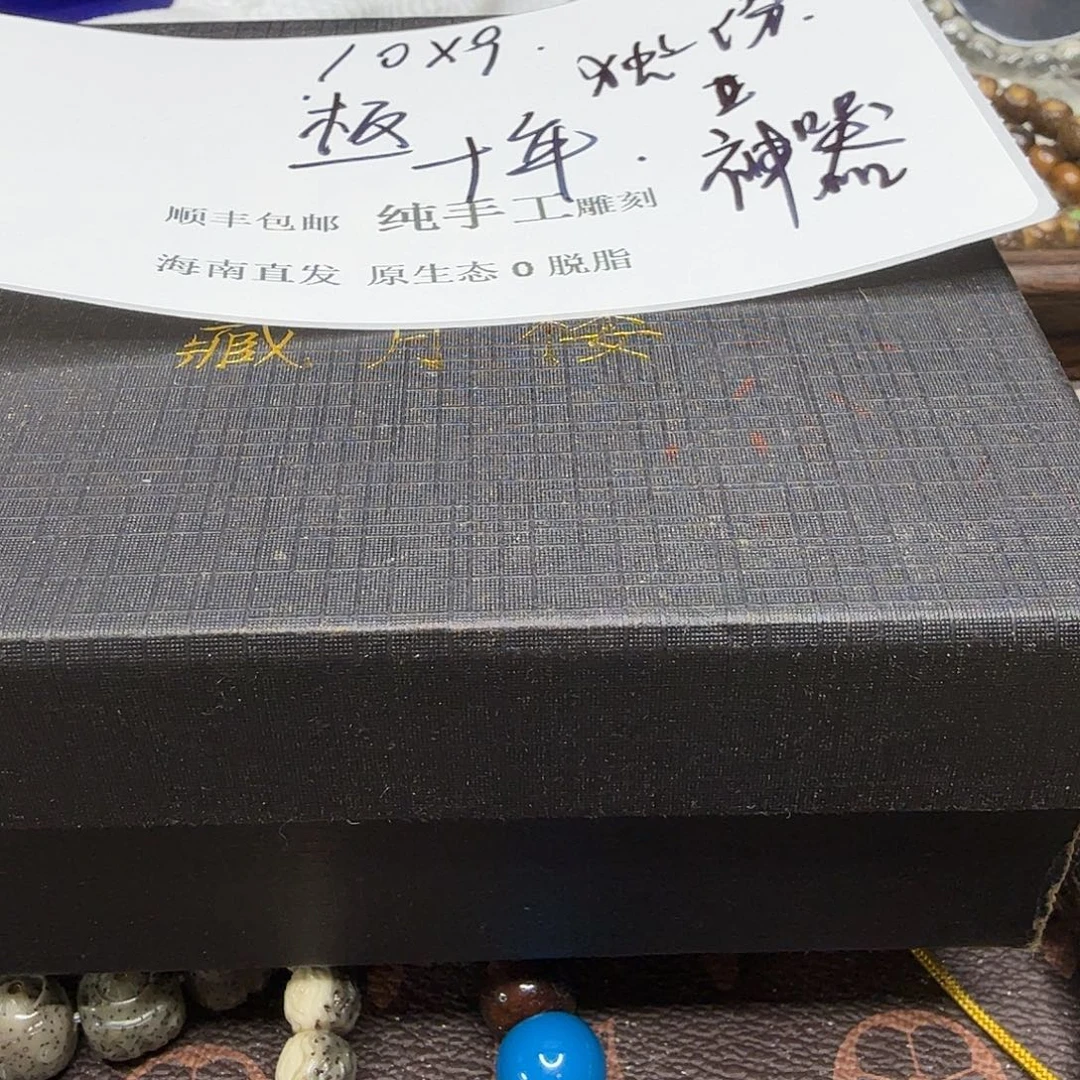 10X9.
独一份.
老板
十年.
神器
顺丰包邮 纯手工雕刻
海南直发 原生态0脱脂
藏月楼